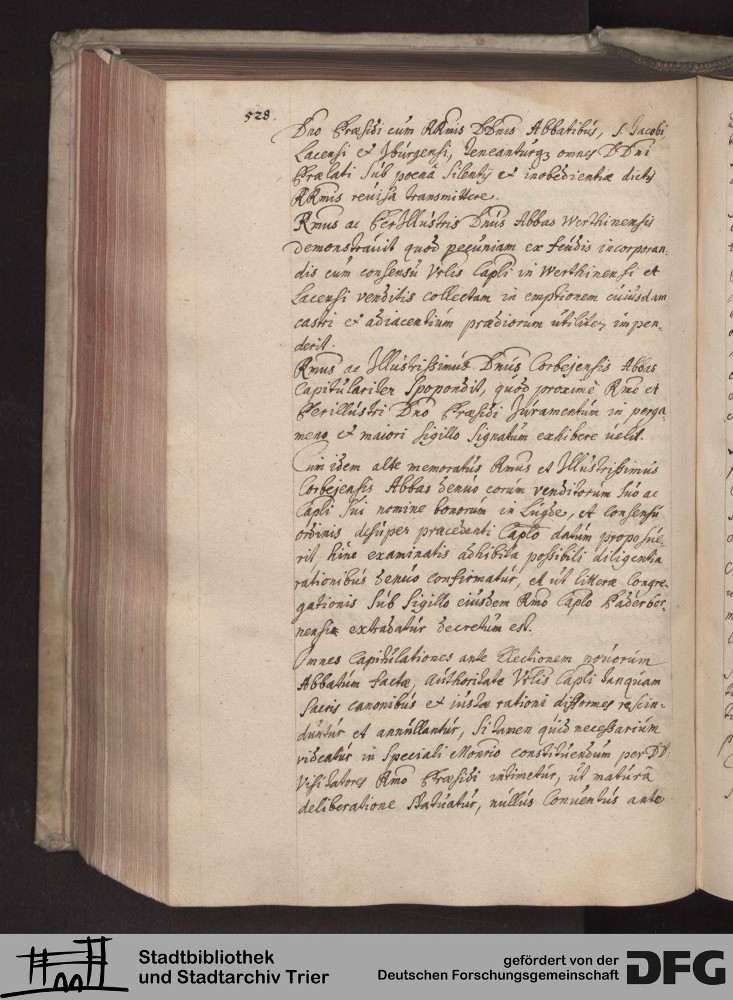 528.
Dno Præsidi cum RRmis DDnis Abbatibus, S. Jacobi,
Lacensi et Iburgensi, teneanturq; omnes DDni
Prælati sub poenâ silentij et inobedientiæ dictis
RRmis revisa transmittere.
Rmus ac Perillustris Dnus Abbas Werthinensis
demonstravit quod pecuniam ex feudis incorporan-
dis cum consensu Vrlis Capli in Werthinensi et
Lacensi venditis collectam in emptionem cuiusdam
castri et adiacentium prædiorum utiliter impen-
derit.
Rmus ac Illustrissimus Dnus Corbejensis Abbas
Capitulariter spopondit, quod proximè Rmo et
Perillustri Dno Præsidi Juramentum in perga-
meno et maiori sigillo signatum exhibere uelit.
Cum idem alte memoratus Rmus et Illustrissimus
Corbejensis Abbas denuo eorum venditorum suo ac
Capli sui nomine bonorum in Lügde, et consensu
ordinis desuper præcedenti Caplo datum proposue-
rit, hinc examinatis adhibita possibili diligentia
rationibus denuo confirmatur, et ut litteræ Congre-
gationis sub sigillo eiusdem Rmo Caplo Paderbor-
nensi extradatur decretum est.
Omnes Capitulationes ante Electionem novorum
Abbatum factæ, authoritate Vrlis Capli tanquam
sacris canonibus et iustæ rationi difformes rescin-
duntur et annullantur, si tamen quid necessarium
videatur in speciali Monrio constituendum per DD
Visitatores Rmo Præsidi intimetur, ut maturâ
deliberatione statuatur, nullus Conventus ante
Stadtbibliothek
und Stadtarchiv Trier
gefördert von der
Deutschen Forschungsgemeinschaft
DFG